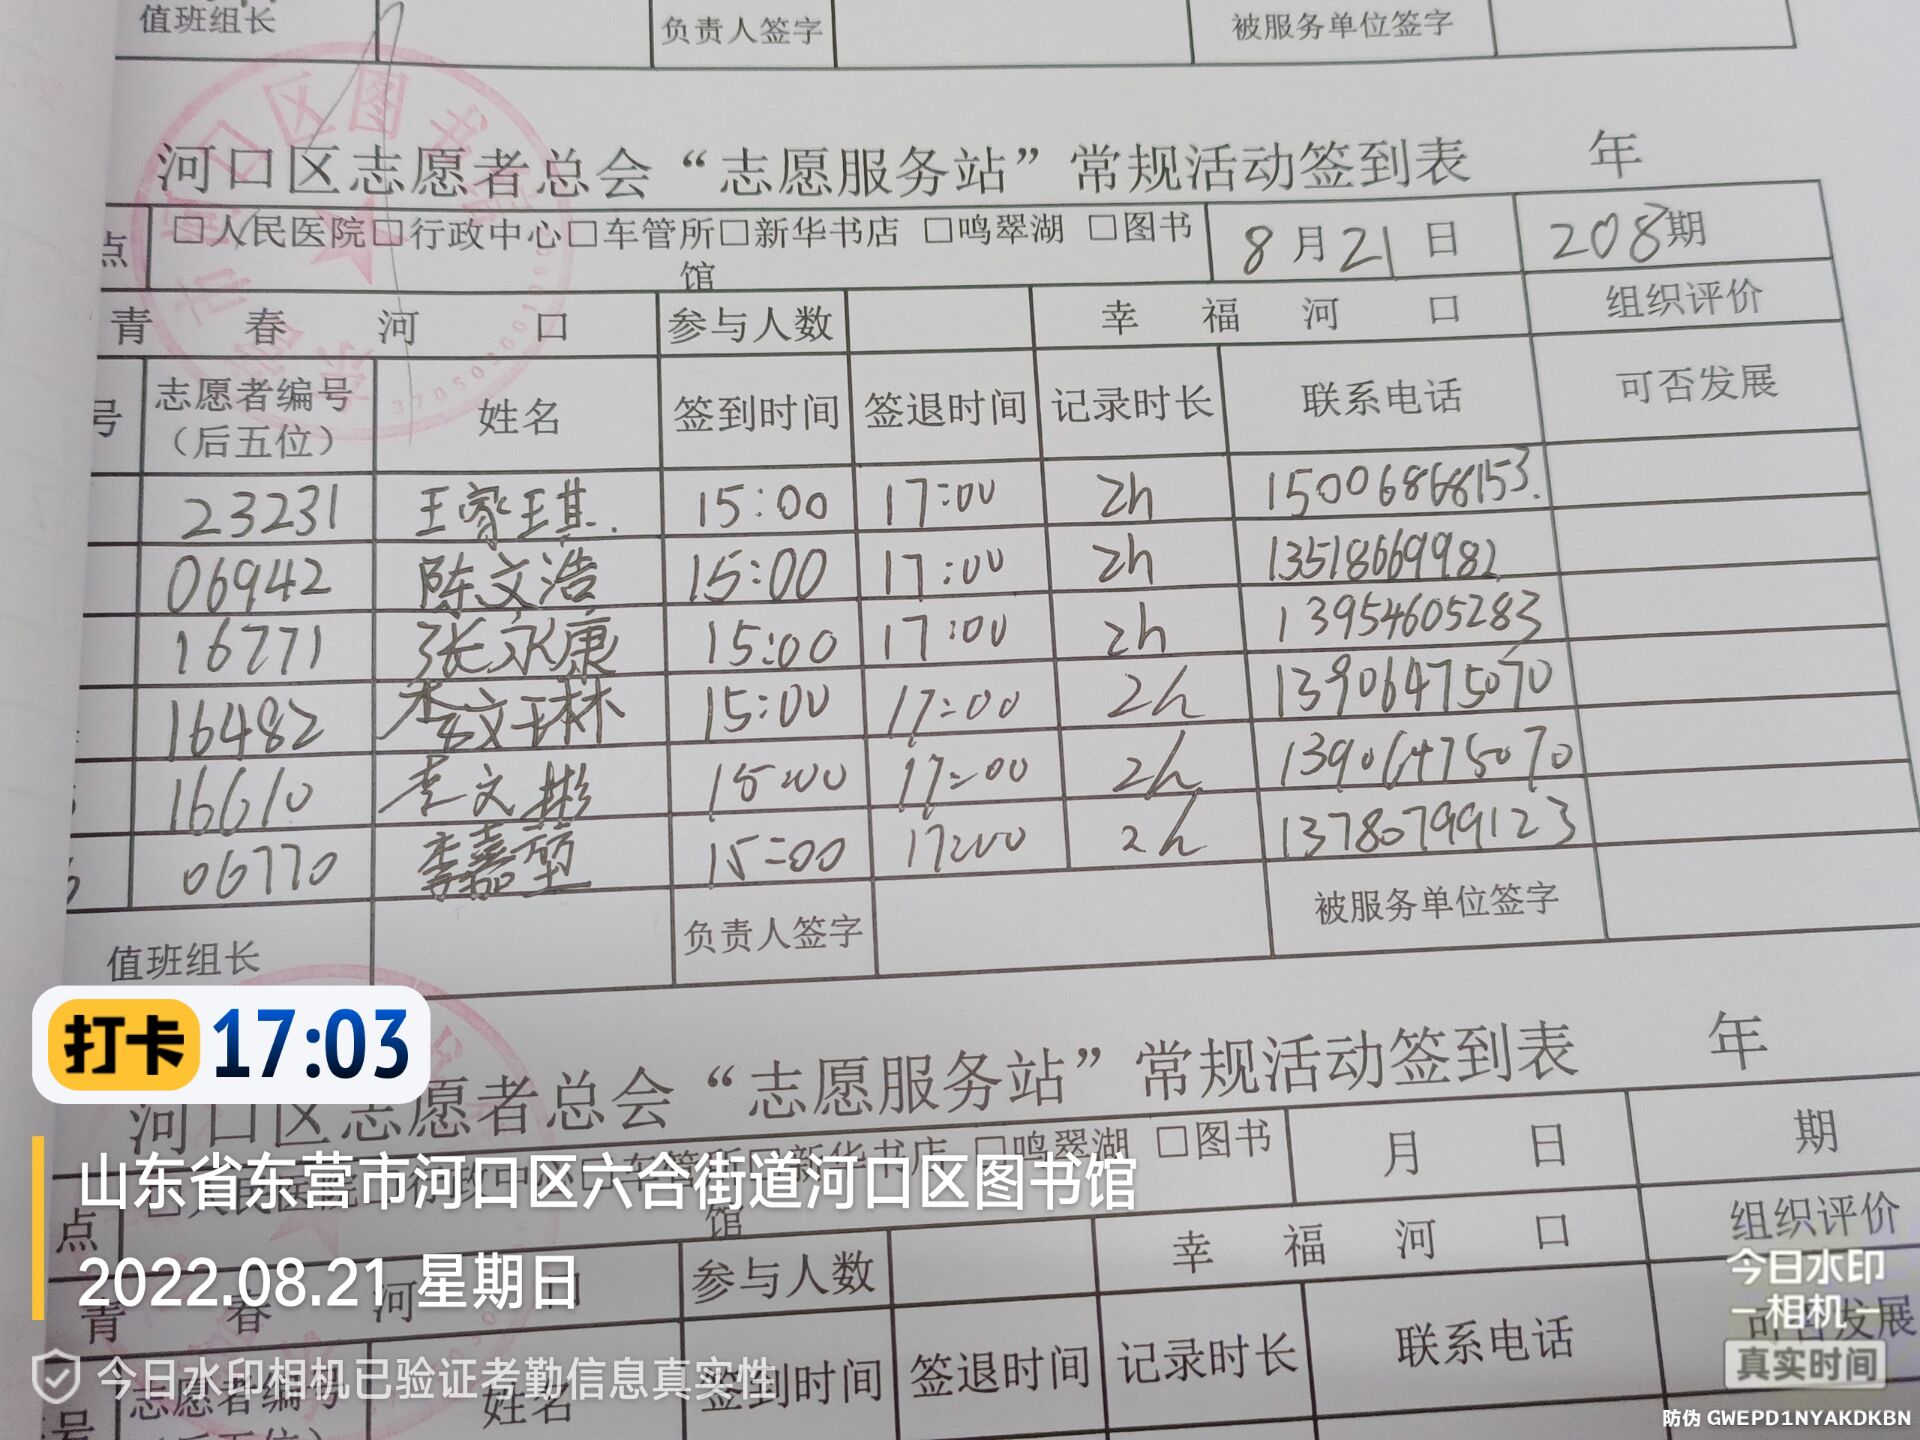 值班组长 负责人签字 被服务单位签字
河口区图书馆
河口区志愿者总会“志愿服务站”常规活动签到表 年
点 □人民医院□行政中心□车管所□新华书店 □鸣翠湖 □图书馆 8月21日 208期
青春河口 参与人数 幸福河口 组织评价
号 志愿者编号（后五位） 姓名 签到时间 签退时间 记录时长 联系电话 可否发展
23231 王家琪. 15:00 17:00 2h 15006868153.
06942 陈文浩 15:00 17:00 2h 13518669982
16771 张永康 15:00 17:00 2h 13954605283
16482 李文琳 15:00 17:00 2h 13906475070
16610 李文彬 15:00 17:00 2h 13906475070
06770 李嘉堃 15:00 17:00 2h 13780799123
值班组长 负责人签字 被服务单位签字
打卡 17:03
河口区志愿者总会“志愿服务站”常规活动签到表 年
点 □人民医院□行政中心□车管所□新华书店 □鸣翠湖 □图书馆 月 日 期
山东省东营市河口区六合街道河口区图书馆
青春河口 参与人数 幸福河口 组织评价
2022.08.21 星期日
号 志愿者编号 姓名 签到时间 签退时间 记录时长 联系电话 可否发展
今日水印相机已验证考勤信息真实性
今日水印
相机
真实时间
防伪 GWEPD1NYAKDKBN